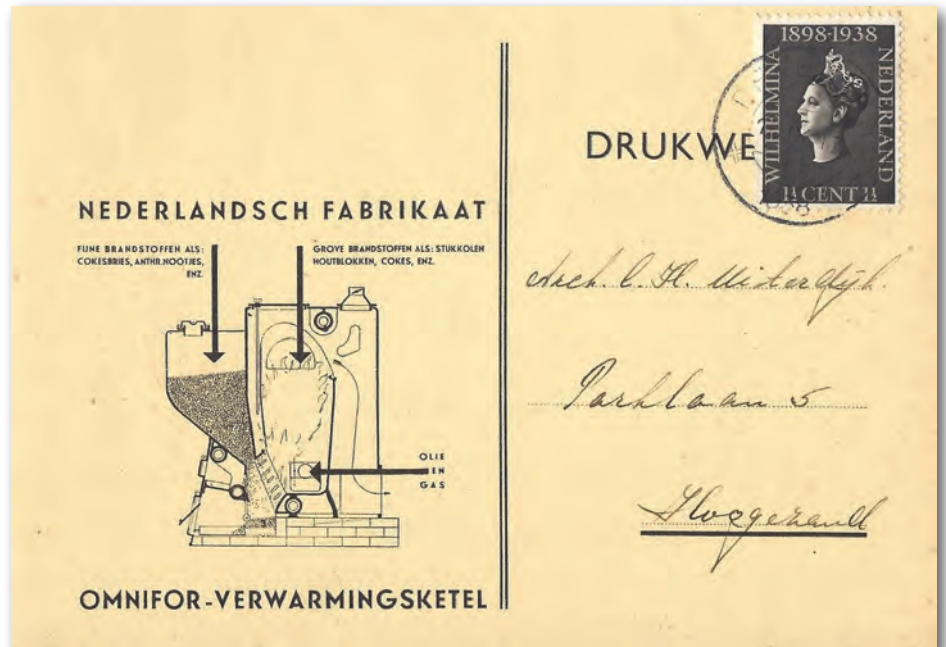 NEDERLANDSCH FABRIKAAT
FIJNE BRANDSTOFFEN ALS:
COKESBRIES, ANTHR.NOOTJES,
ENZ.
GROVE BRANDSTOFFEN ALS: STUKKOLEN
HOUTBLOKKEN, COKES, ENZ.
OLIE
EN
GAS
OMNIFOR-VERWARMINGSKETEL
1898-1938
WILHELMINA
NEDERLAND
1½ CENT 1½
DRUKWE
Arch. C. H. Uiterdijk.
Parklaan 5
Hoogezand